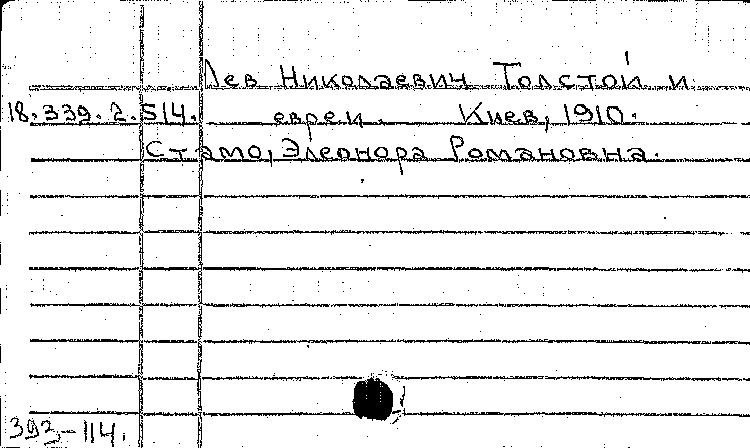 Лев Николаевич Толстой и
18.339.2.514. евреи. Киев, 1910.
Стамо, Элеонора Романовна.
393-114.